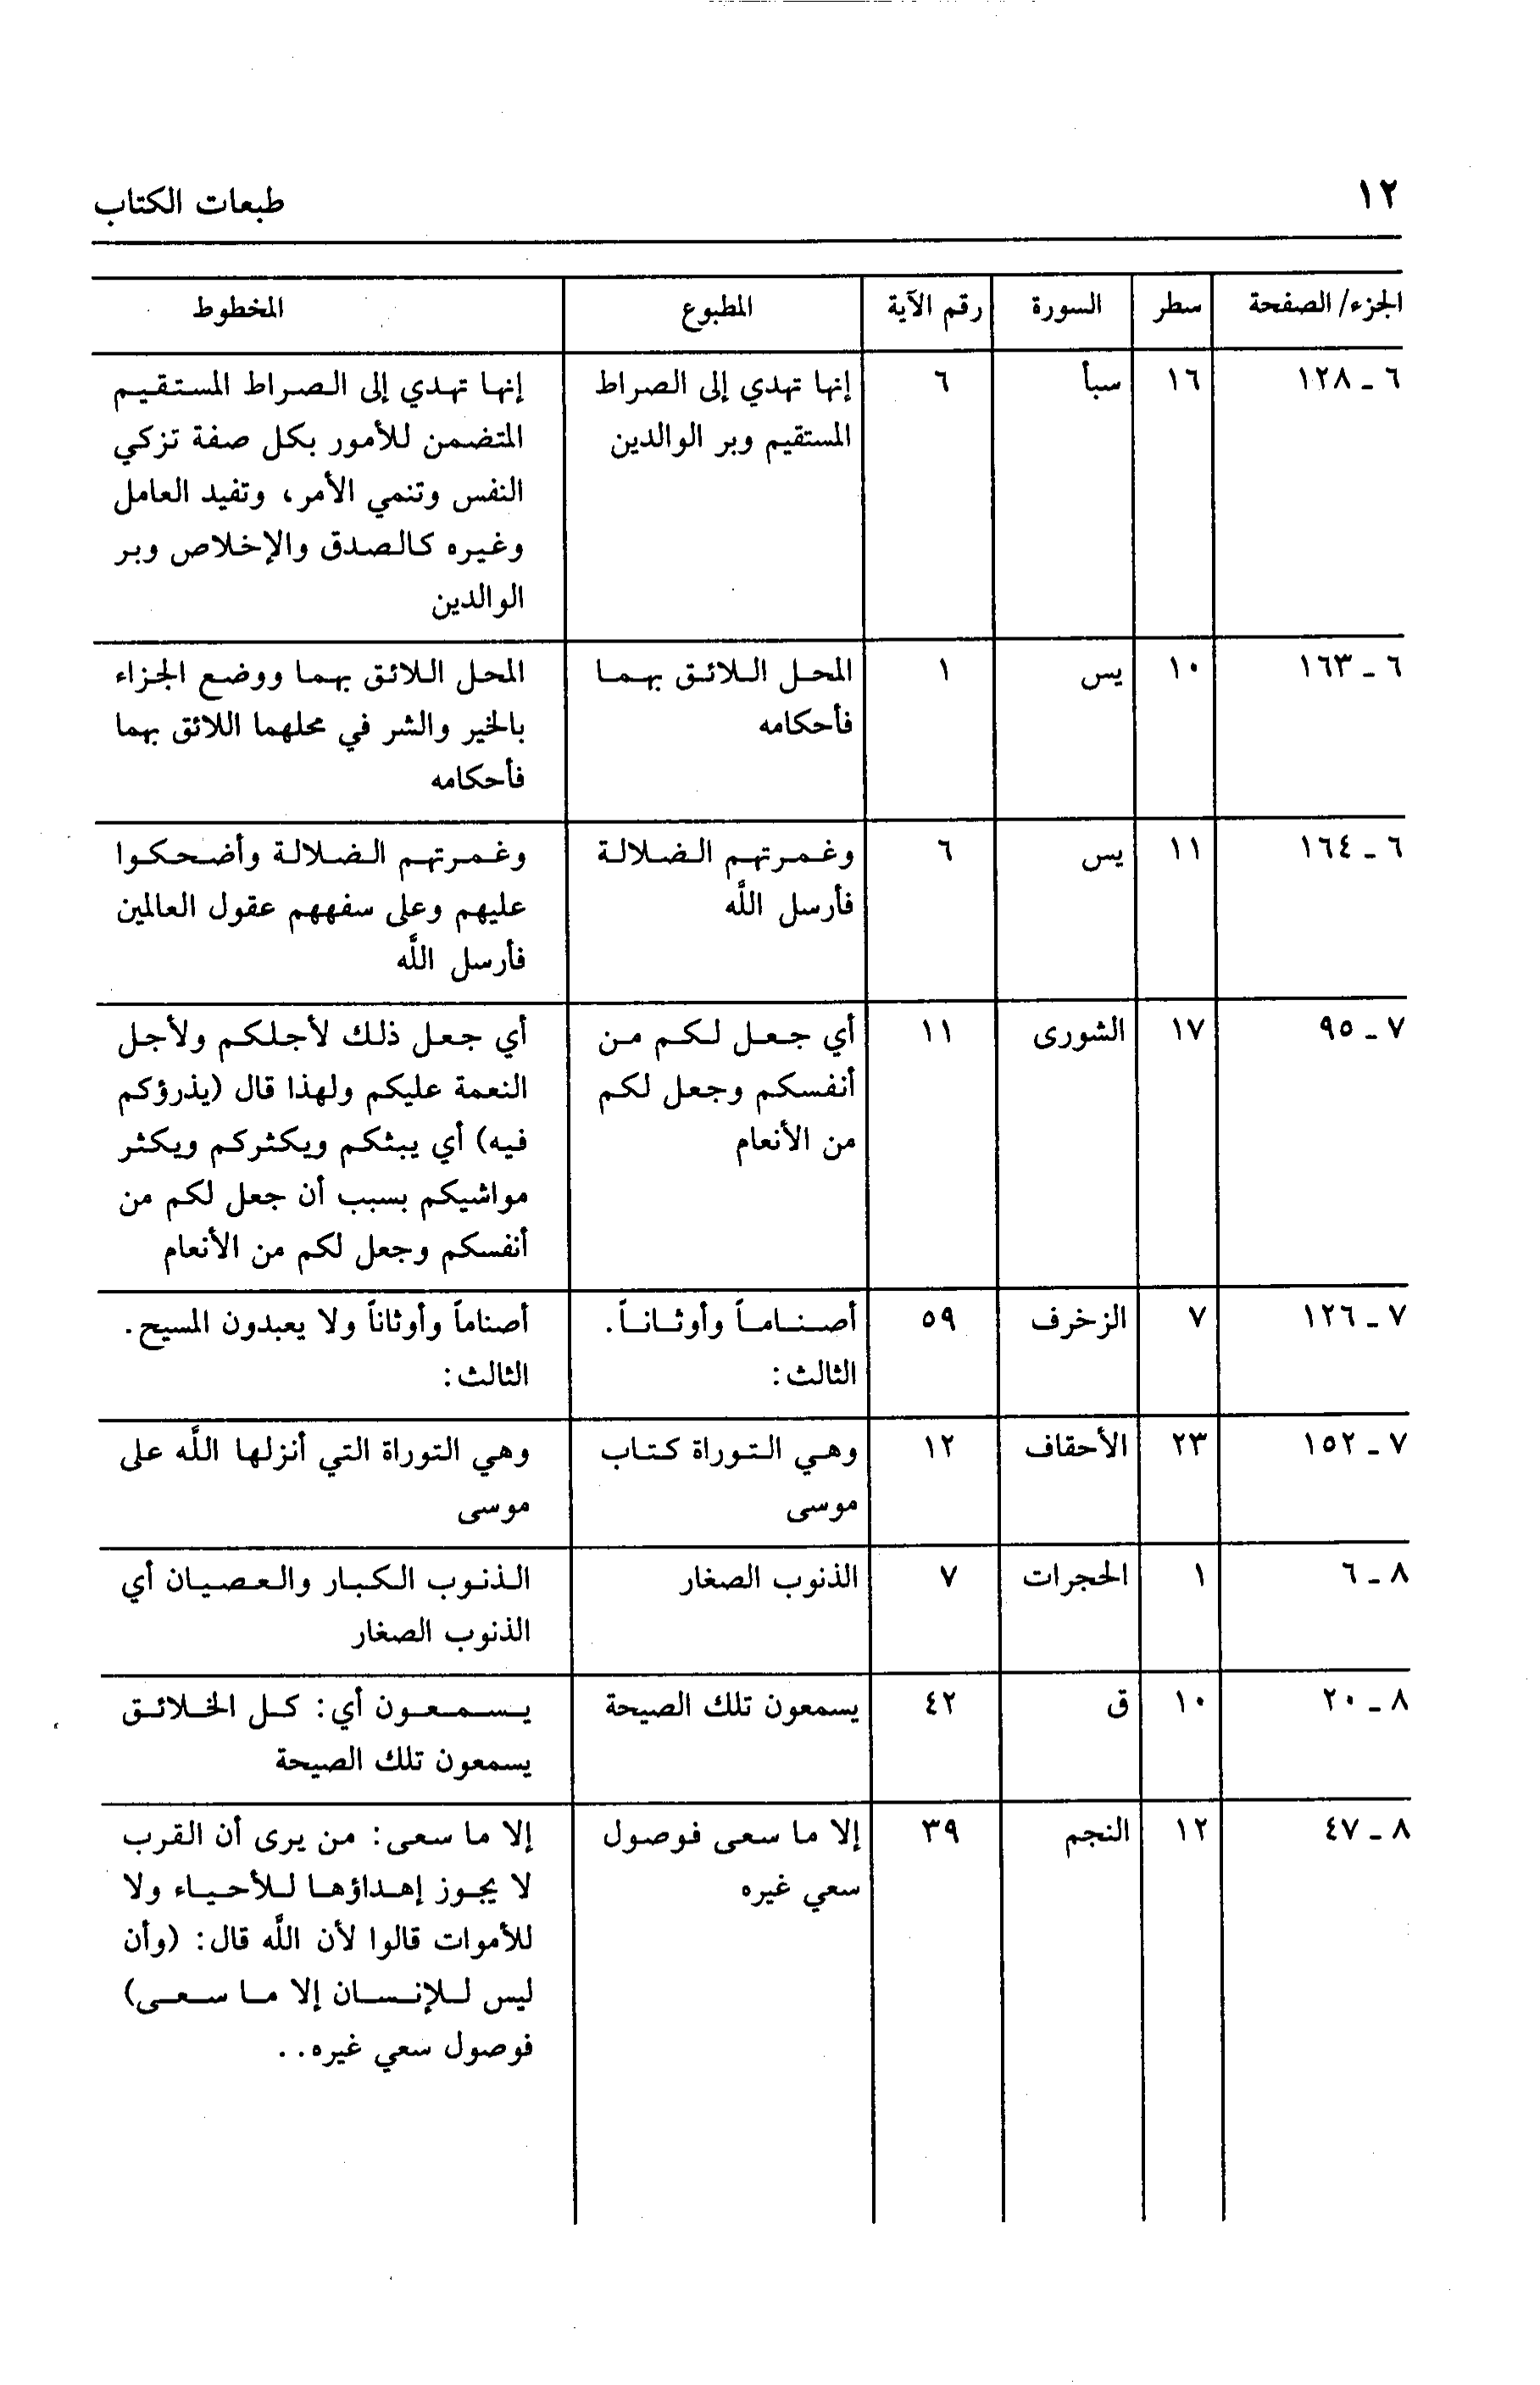 ١٢
طبعات الكتاب
الجزء/ الصفحة سطر السورة رقم الآية المطبوع المخطوط
٦ ـ ١٢٨ ١٦ سبأ ٦ إنها تهدي إلى الصراط إنها تهدي إلى الصراط المستقيم
المستقيم وبر الوالدين المتضمن للأمور بكل صفة تزكي
النفس وتنمي الأمر، وتفيد العامل
وغيره كالصدق والإخلاص وبر
الوالدين
٦ ـ ١٦٣ ١٠ يس ١ المحل اللائق بهما المحل اللائق بهما ووضع الجزاء
فأحكامه بالخير والشر في محلهما اللائق بهما
فأحكامه
٦ ـ ١٦٤ ١١ يس ٦ وغمرتهم الضلالة وغمرتهم الضلالة وأضحكوا
فأرسل اللَّه عليهم وعلى سفههم عقول العالمين
فأرسل اللَّه
٧ ـ ٩٥ ١٧ الشورى ١١ أي جعل لكم من أي جعل ذلك لأجلكم ولأجل
أنفسكم وجعل لكم النعمة عليكم ولهذا قال (يذرؤكم
من الأنعام فيه) أي يبثكم ويكثركم ويكثر
مواشيكم بسبب أن جعل لكم من
أنفسكم وجعل لكم من الأنعام
٧ ـ ١٢٦ ٧ الزخرف ٥٩ أصناماً وأوثاناً. أصناماً وأوثاناً ولا يعبدون المسيح.
الثالث: الثالث:
٧ ـ ١٥٢ ٢٣ الأحقاف ١٢ وهي التوراة كتاب وهي التوراة التي أنزلها اللَّه على
موسى موسى
٨ ـ ٦ ١ الحجرات ٧ الذنوب الصغار الذنوب الكبار والعصيان أي
الذنوب الصغار
٨ ـ ٢٠ ١٠ ق ٤٢ يسمعون تلك الصيحة يسمعون أي: كل الخلائق
يسمعون تلك الصيحة
٨ ـ ٤٧ ١٢ النجم ٣٩ إلا ما سعى فوصول إلا ما سعى: من يرى أن القرب
سعي غيره لا يجوز إهداؤها للأحياء ولا
للأموات قالوا لأن اللَّه قال: (وأن
ليس للإنسان إلا ما سعى)
فوصول سعي غيره..